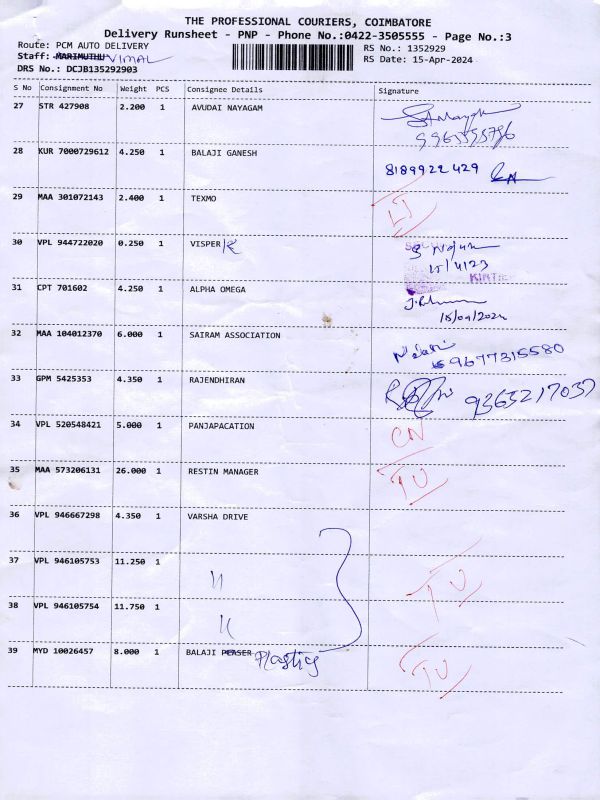 THE PROFESSIONAL COURIERS, COIMBATORE
Delivery Runsheet - PNP - Phone No.:0422-3505555 - Page No.:3
Route: PCM AUTO DELIVERY RS No.: 1352929
Staff: MARIMUTHU VIMAL RS Date: 15-Apr-2024
DRS No.: DCJB135292903
S No Consignment No Weight PCS Consignee Details Signature
27 STR 427908 2.200 1 AVUDAI NAYAGAM
28 KUR 7000729612 4.250 1 BALAJI GANESH 8189922429
29 MAA 301072143 2.400 1 TEXMO
30 VPL 944722020 0.250 1 VISPER
15/4/23
31 CPT 701602 4.250 1 ALPHA OMEGA
15/04/2024
32 MAA 104012370 6.000 1 SAIRAM ASSOCIATION
9677315580
33 GPM 5425353 4.350 1 RAJENDHIRAN 9365217037
34 VPL 520548421 5.000 1 PANJAPACATION CN
35 MAA 573206131 26.000 1 RESTIN MANAGER TU
36 VPL 946667298 4.350 1 VARSHA DRIVE
37 VPL 946105753 11.250 1 " TU
38 VPL 946105754 11.750 1 "
39 MYD 10026457 8.000 1 BALAJI Plastics TU